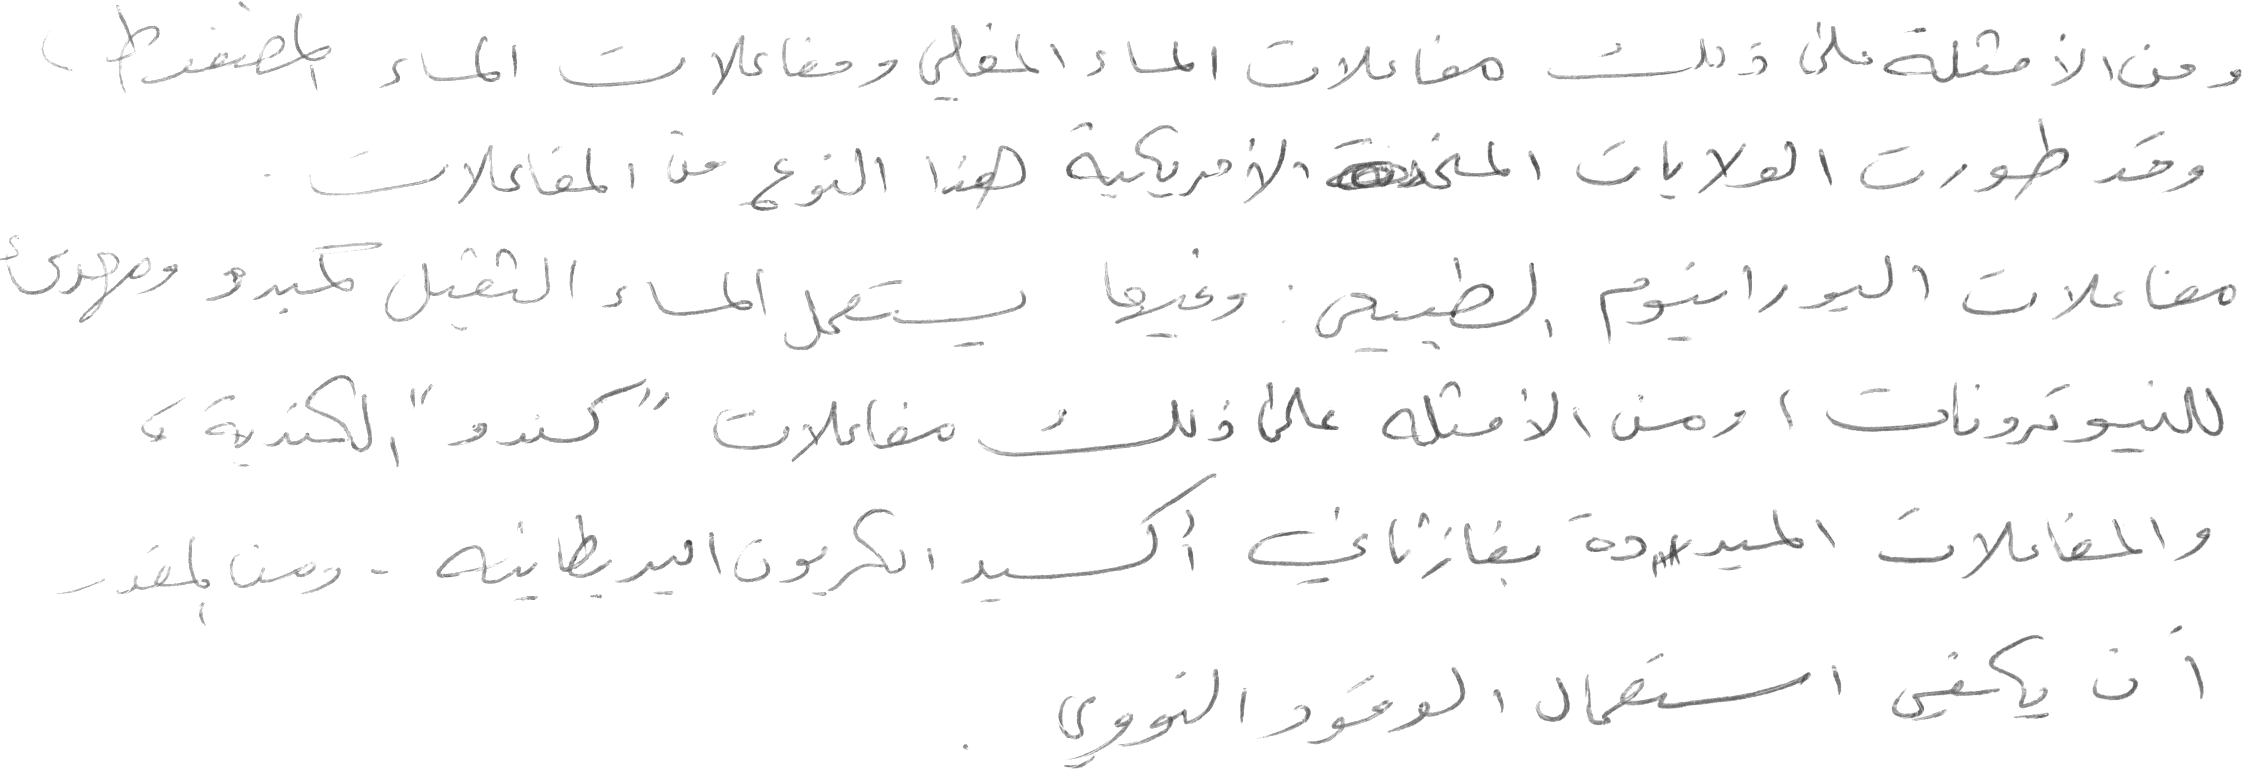 ومن الأمثلة على ذلك مفاعلات الماء المغلي ومفاعلات الماء المضغوط،
وقد طورت الولايات المتحدة الأمريكية هذا النوع من المفاعلات.
مفاعلات اليورانيوم الطبيعي: وفيها يستعمل الماء الثقيل كمبرد ومهدئ
للنيوترونات، ومن الأمثله على ذلك مفاعلات "كندو" الكندية،
والمفاعلات المبردة بغاز ثاني أكسيد الكربون البريطانيه. ومن المقدر
أن يكفي استعمال الوقود النووي.